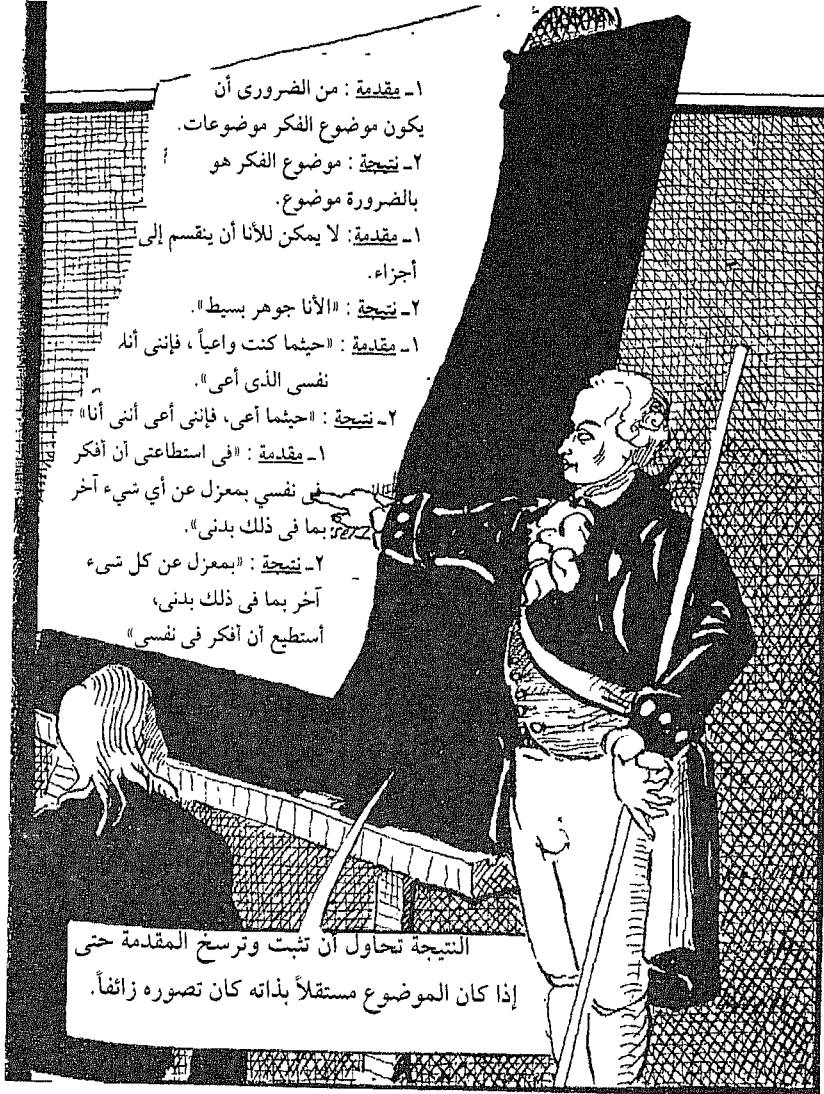 ١ـ مقدمة : من الضرورى أن
يكون موضوع الفكر موضوعات.
٢ـ نتيجة : موضوع الفكر هو
بالضرورة موضوع.
١ـ مقدمة: لا يمكن للأنا أن ينقسم إلى
أجزاء.
٢ـ نتيجة : «الأنا جوهر بسيط».
١ـ مقدمة : «حيثما كنت واعياً ، فإننى أنا
نفسى الذى أعى».
٢ـ نتيجة : «حيثما أعى، فإننى أعى أننى أنا»
١ـ مقدمة : «فى استطاعتى أن أفكر
فى نفسي بمعزل عن أي شيء آخر
بما فى ذلك بدنى».
٢ـ نتيجة : «بمعزل عن كل شىء
آخر بما فى ذلك بدنى،
أستطيع أن أفكر فى نفسى»
النتيجة تحاول أن تثبت وترسخ المقدمة حتى
إذا كان الموضوع مستقلاً بذاته كان تصوره زائفاً.